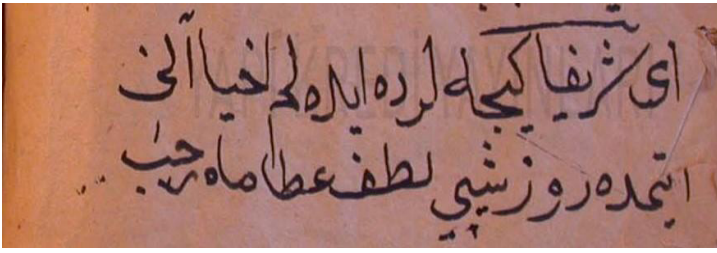 ای شریفا کیجه لرده ایده لم احیا آنی
ایتمده روز شبی لطف عطا ماه رجب